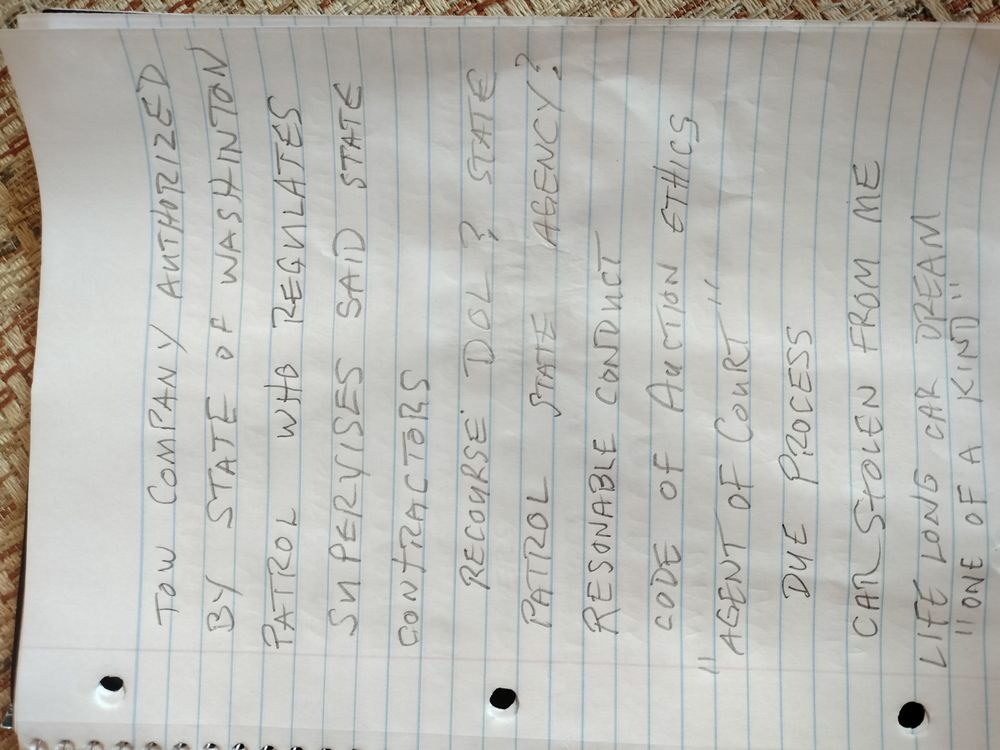 TOW COMPANY AUTHORIZED
BY STATE OF WASHINTON
PATROL WHO REGULATES
SUPERVISES SAID STATE
CONTRACTORS
RECOURSE DOL? STATE
PATROL STATE AGENCY?
RESONABLE CONDUCT
CODE OF AUCTION ETHICS
"AGENT OF COURT"
DUE PROCESS
CAR STOLEN FROM ME
LIFE LONG CAR DREAM
"ONE OF A KIND"